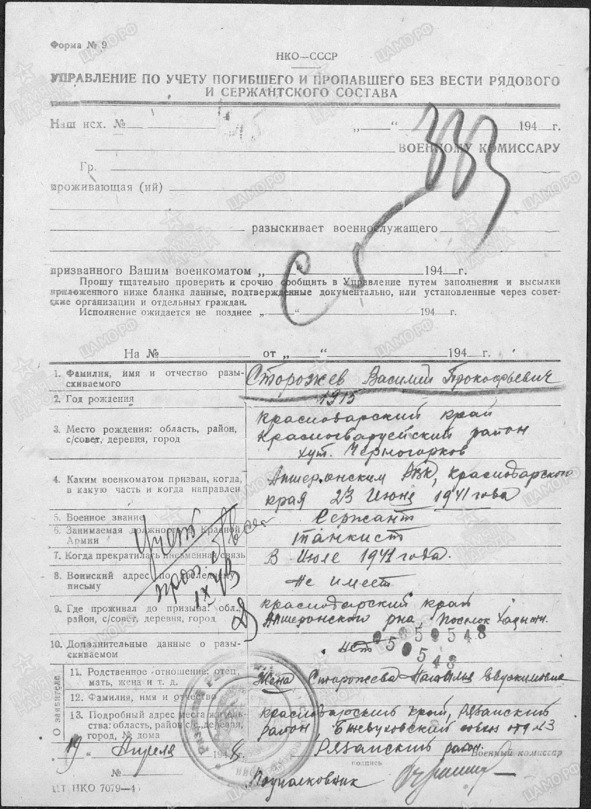 Форма № 9
НКО—СССР
УПРАВЛЕНИЕ ПО УЧЕТУ ПОГИБШЕГО И ПРОПАВШЕГО БЕЗ ВЕСТИ РЯДОВОГО
И СЕРЖАНТСКОГО СОСТАВА
Наш исх. № „ “ 194 г.
ВОЕННОМУ КОМИССАРУ
Гр.
проживающая (ий)
разыскивает военнослужащего
призванного Вашим военкоматом „ “ 194 г.
Прошу тщательно проверить и срочно сообщить в Управление путем заполнения и высылки
приложенного ниже бланка данные, подтвержденные документально, или установленные через советские организации и отдельных граждан.
Исполнение ожидается не позднее „ “ 194 г.
На № от „ “ 194 г.
1. Фамилия, имя и отчество разыскиваемого Сторожев Василий Прокофьевич
2. Год рождения 1915
3. Место рождения: область, район, с/совет, деревня, город Краснодарский край
Красногвардейский район
хут.
4. Каким военкоматом призван, когда, в какую часть и когда направлен Апшеронским РВК, Краснодарского
края 23 Июня 1941 года
5. Военное звание Сержант
6. Занимаемая должность в Красной Армии танкист
7. Когда прекратилась письменная связь В Июле 1941 года.
8. Воинский адрес по последнему письму Не имеет
9. Где проживал до призыва: обл., район, с/совет, деревня, город Краснодарский край
Апшеронского р-на, поселок
10. Дополнительные данные о разыскиваемом нет
О заявителе
11. Родственное отношение: отец, мать, жена и т. д. Жена
12. Фамилия, имя и отчество Сторожева Наталья
13. Подробный адрес места жительства: область, район, с/совет, деревня, город, № дома Краснодарский край, Рязанский
район
Учет
19 „ “ Апреля 194 г.
Рязанский район.
Военный комиссар
Подполковник
подпись
№
ЦТ НКО 7079—4
ЦАМО.РФ